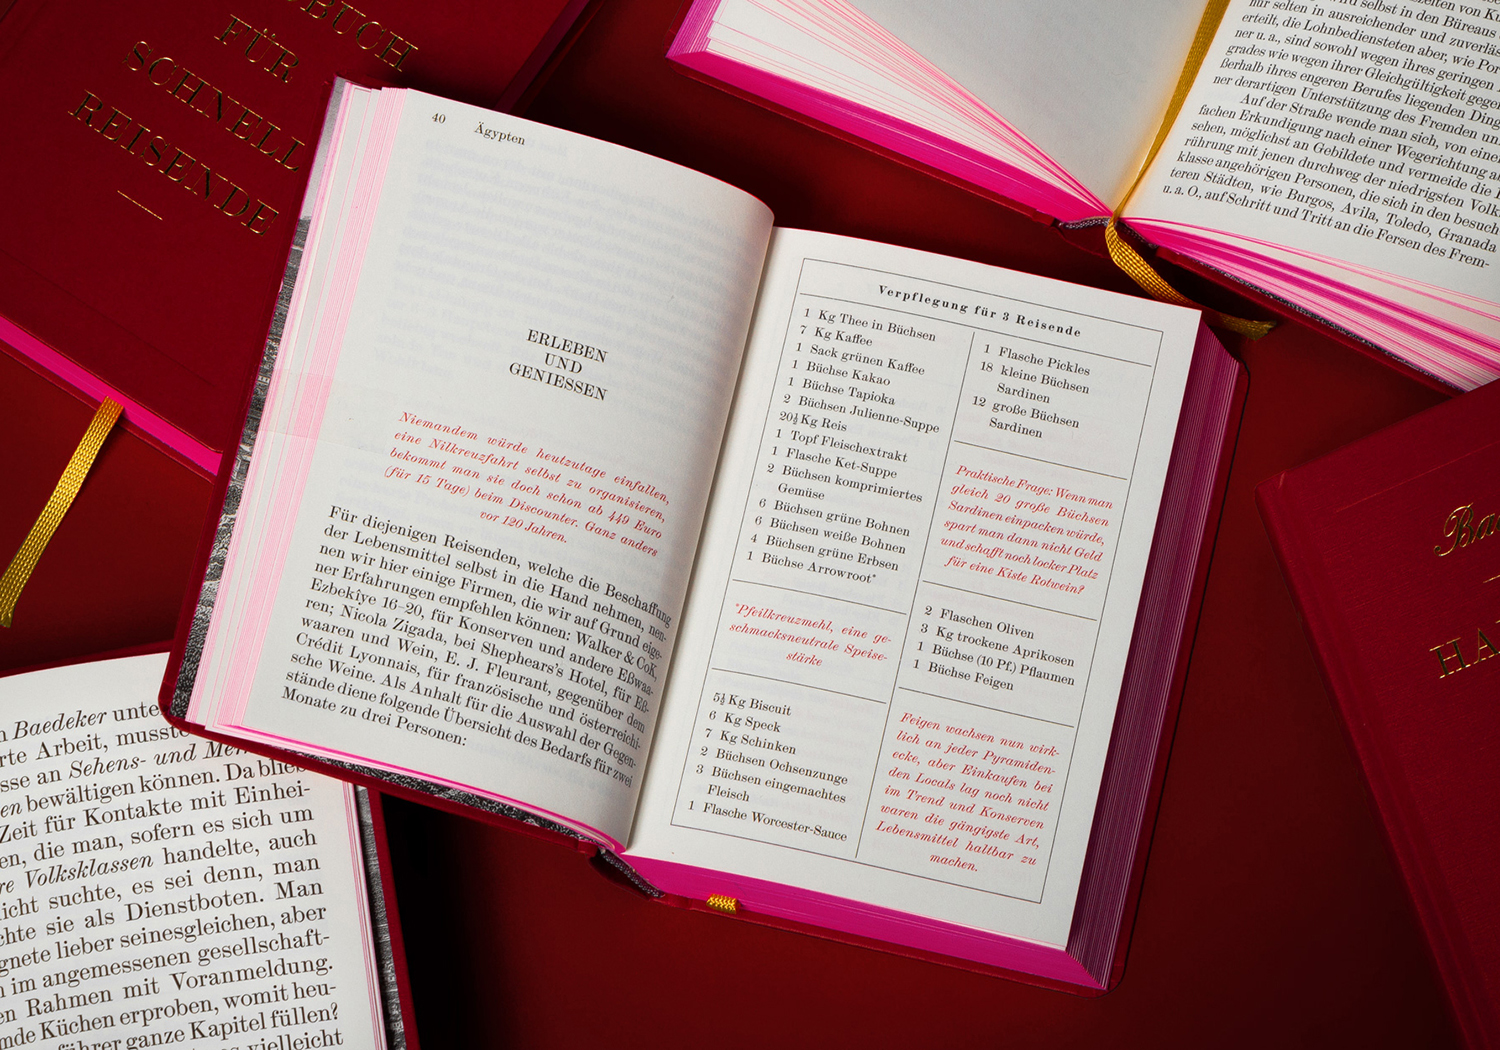 BUCH
FÜR
SCHNELL
REISENDE
40 Ägypten
ERLEBEN
UND
GENIESSEN
Niemandem würde heutzutage einfallen,
eine Nilkreuzfahrt selbst zu organisieren,
bekommt man sie doch schon ab 449 Euro
(für 15 Tage) beim Discounter. Ganz anders
vor 120 Jahren.
Für diejenigen Reisenden, welche die Beschaffung
der Lebensmittel selbst in die Hand nehmen, nen-
nen wir hier einige Firmen, die wir auf Grund eige-
ner Erfahrungen empfehlen können: Walker & CoK,
Ezbekîye 16–20, für Konserven und andere Eßwaa-
ren; Nicola Zigada, bei Shephears's Hotel, für Eß-
waaren und Wein, E. J. Fleurant, gegenüber dem
Crédit Lyonnais, für französische und österreichi-
sche Weine. Als Anhalt für die Auswahl der Gegen-
stände diene folgende Übersicht des Bedarfs für zwei
Monate zu drei Personen:
Verpflegung für 3 Reisende
1 Kg Thee in Büchsen
7 Kg Kaffee
1 Sack grünen Kaffee
1 Büchse Kakao
1 Büchse Tapioka
2 Büchsen Julienne-Suppe
20½ Kg Reis
1 Topf Fleischextrakt
1 Flasche Ket-Suppe
2 Büchsen komprimiertes
Gemüse
6 Büchsen grüne Bohnen
6 Büchsen weiße Bohnen
4 Büchsen grüne Erbsen
1 Büchse Arrowroot*
*Pfeilkreuzmehl, eine ge-
schmacksneutrale Speise-
stärke
5½ Kg Biscuit
6 Kg Speck
7 Kg Schinken
2 Büchsen Ochsenzunge
3 Büchsen eingemachtes
Fleisch
1 Flasche Worcester-Sauce
1 Flasche Pickles
18 kleine Büchsen
Sardinen
12 große Büchsen
Sardinen
Praktische Frage: Wenn man
gleich 20 große Büchsen
Sardinen einpacken würde,
spart man dann nicht Geld
und schafft noch locker Platz
für eine Kiste Rotwein?
2 Flaschen Oliven
3 Kg trockene Aprikosen
1 Büchse (10 Pf.) Pflaumen
1 Büchse Feigen
Feigen wachsen nun wirk-
lich an jeder Pyramiden-
ecke, aber Einkaufen bei
den Locals lag noch nicht
im Trend und Konserven
waren die gängigste Art,
Lebensmittel haltbar zu
machen.
wird selbst in den Büreaus
nur selten in ausreichender und zuverläs
erteilt, die Lohnbediensteten aber, wie Por
ner u. a., sind sowohl wegen ihres geringen
grades wie wegen ihrer Gleichgültigkeit gegen
ßerhalb ihres engeren Berufes liegenden Ding
ner derartigen Unterstützung des Fremden un
Auf der Straße wende man sich, von eine
fachen Erkundigung nach einer Wegerichtung a
sehen, möglichst an Gebildete und vermeide die
rührung mit jenen durchweg der niedrigsten Volk
klasse angehörigen Personen, die sich in den besuch
teren Städten, wie Burgos, Avila, Toledo, Granada
u. a. O., auf Schritt und Tritt an die Fersen des Frem-
Bae
HA
n Baedeker unte
rte Arbeit, musste
sse an Sehens- und Mer
en bewältigen können. Da blieb
Zeit für Kontakte mit Einhei-
en, die man, sofern es sich um
re Volksklassen handelte, auch
icht suchte, es sei denn, man
chte sie als Dienstboten. Man
gnete lieber seinesgleichen, aber
n im angemessenen gesellschaft-
en Rahmen mit Voranmeldung.
mde Küchen erproben, womit heu-
führer ganze Kapitel füllen?
vielleicht